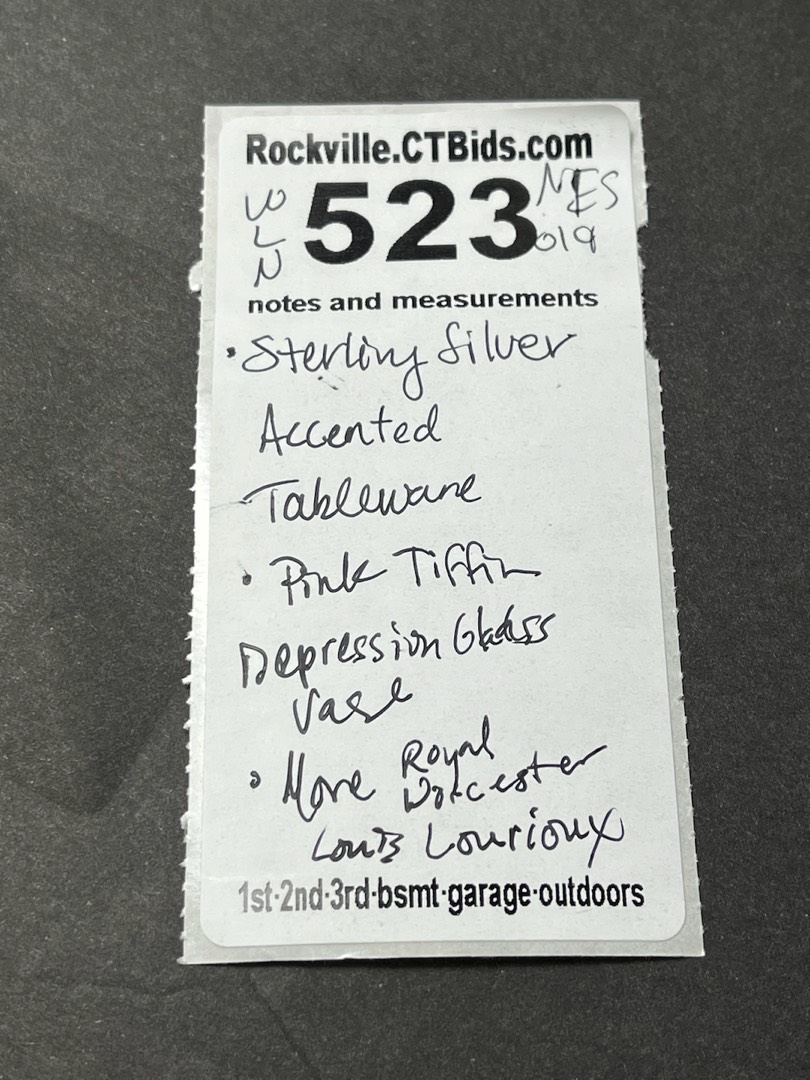 Rockville.CTBids.com
W
L
N
523
NES
019
notes and measurements
• Sterling Silver
Accented
Tableware
• Pink Tiffin
Depression Glass
Vase
• More Royal
Worcester
Louis Lourioux
1st·2nd·3rd·bsmt·garage·outdoors